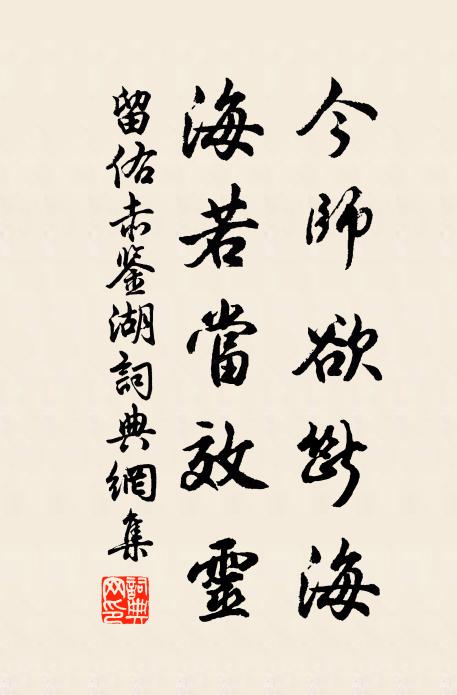 今師欲斷海
海若當效靈
留佑赤鉴湖詞典網集
詞典
网印